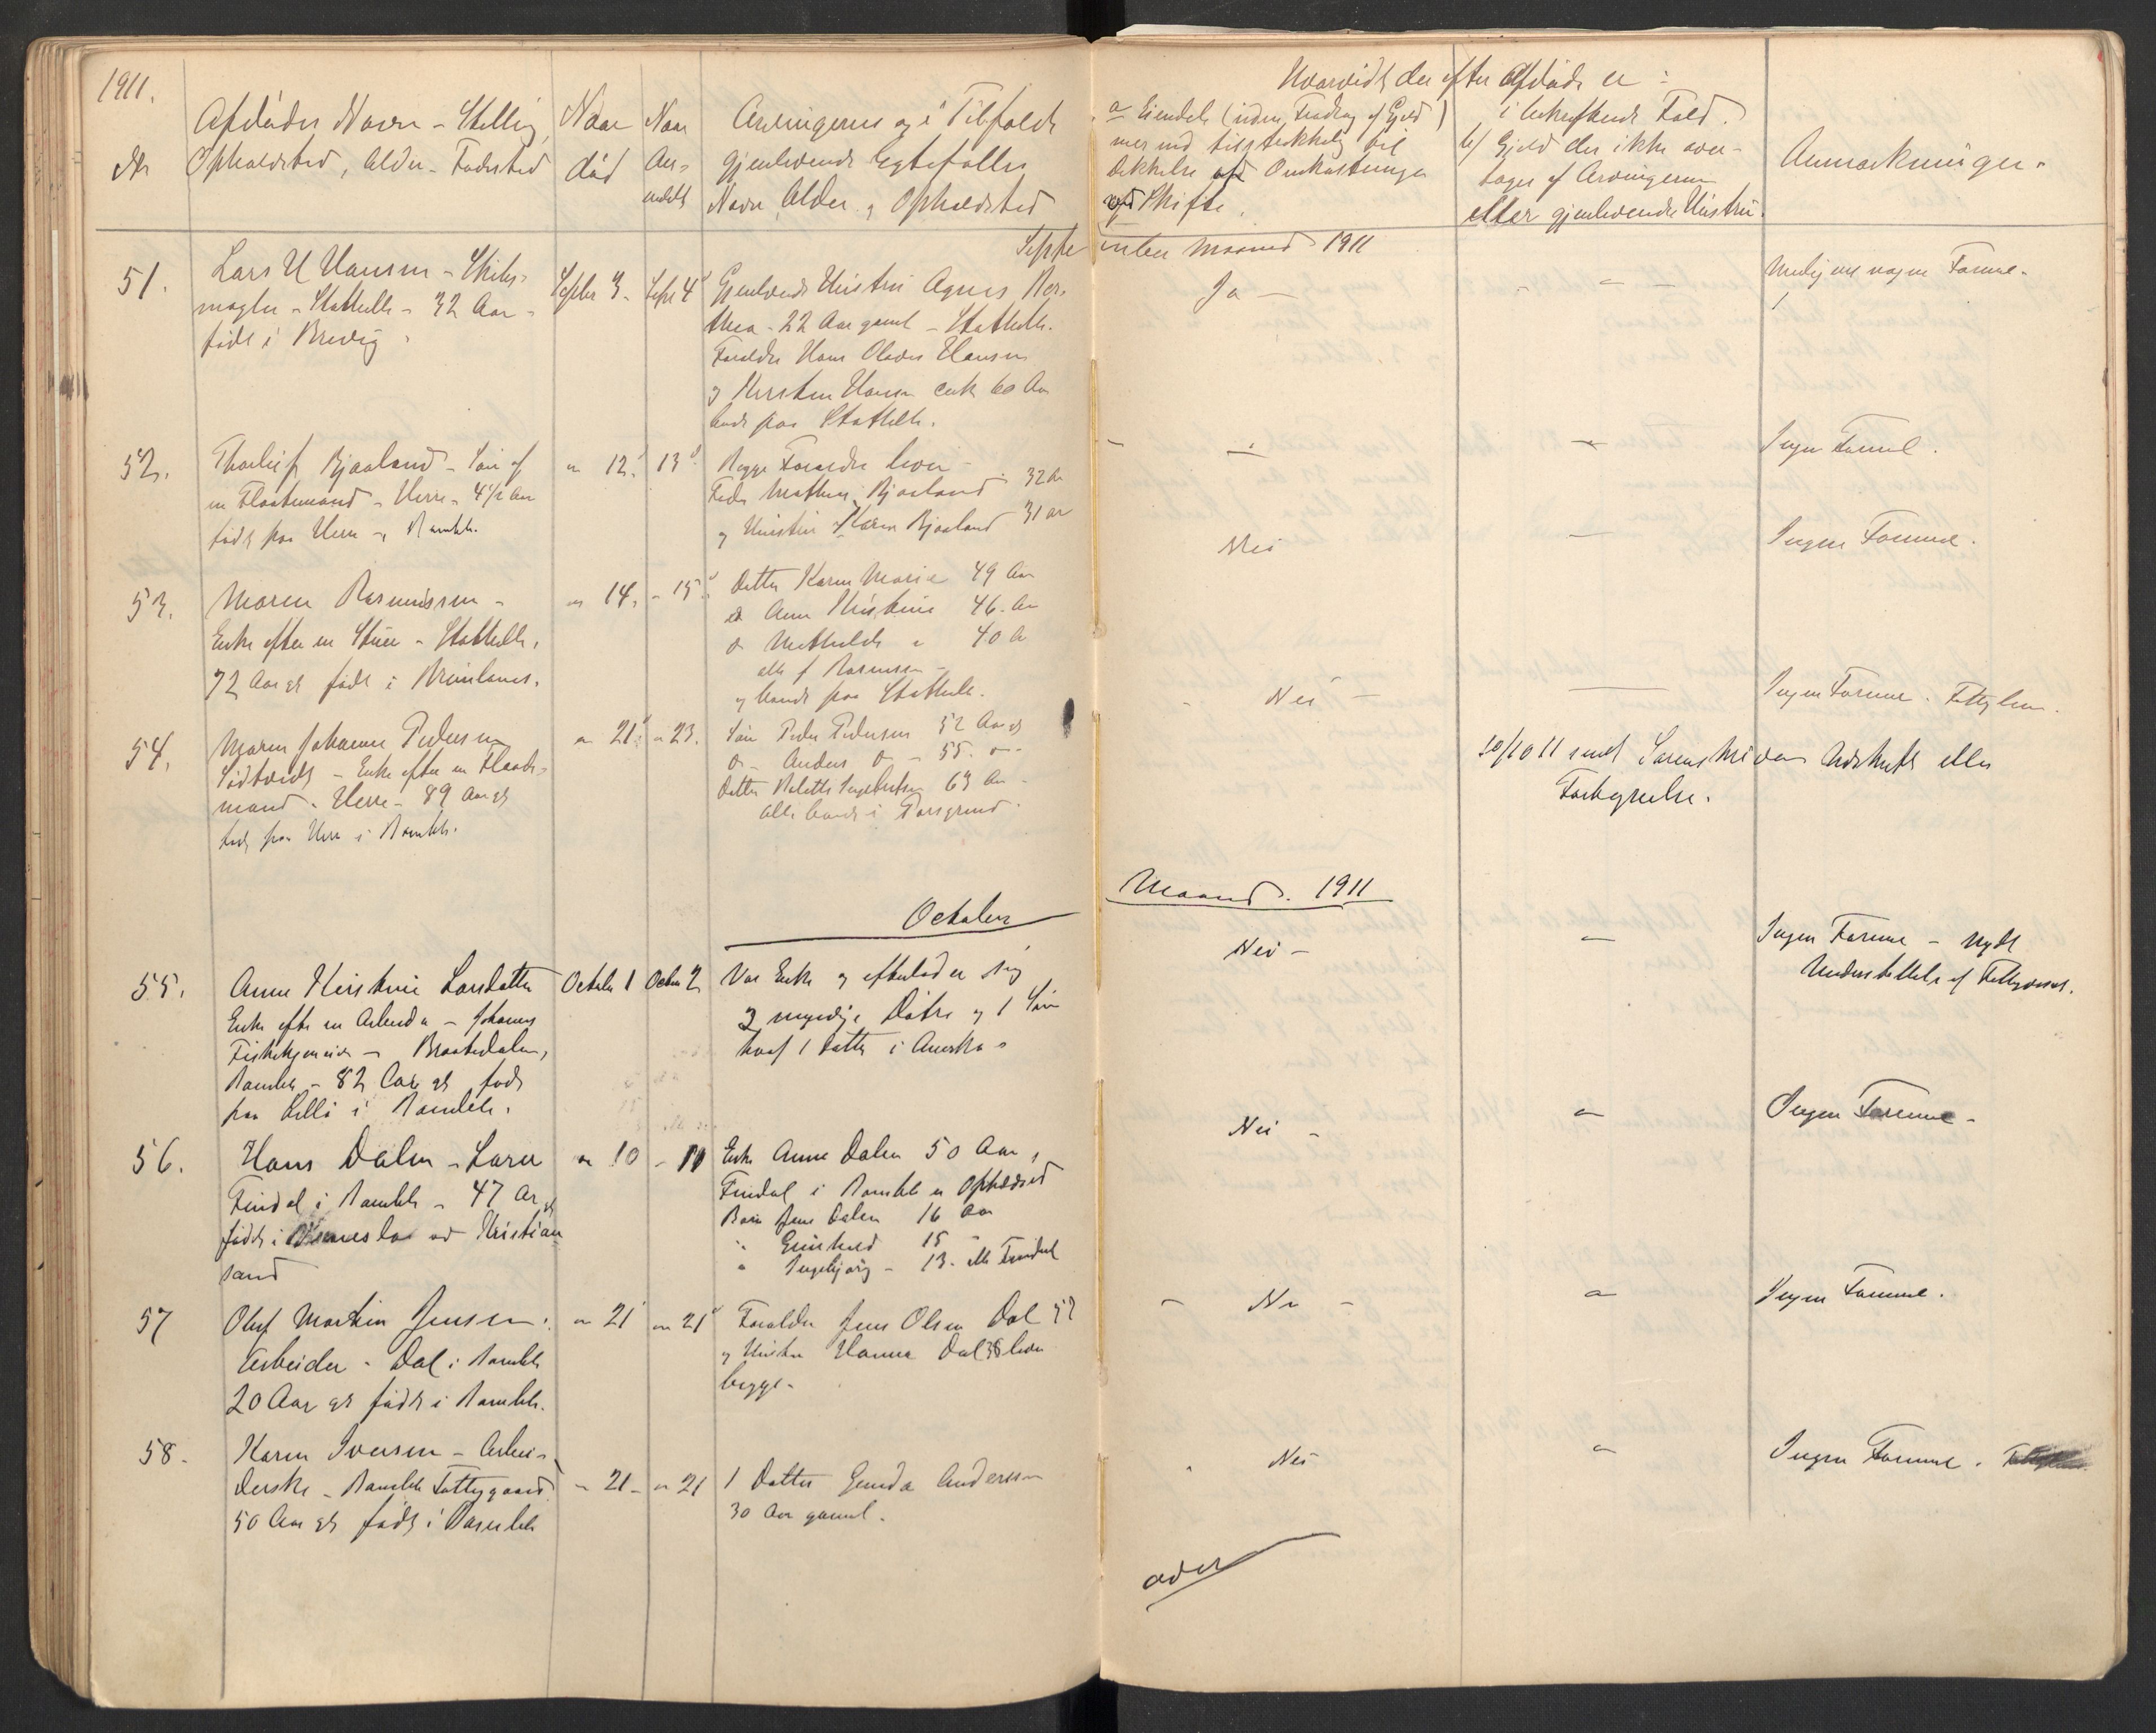 1911.
Nr
Afdødes Navn - Stilling
Opholdsted, Alder - Fødested
Naar
død
Naar
An-
meldt
Arvingernes og i Tilfælde
gjenlevende Egtefælles
Navn, Alder og Opholdsted
Hvorvidt der efter Afdøde er :
a Eiendele (uden Fradrag af Gjæld)
mer end tilstrekkelig til
Dekkelse af Omkostninger
ved Skifte.
i bekræftende Fald.
b) Gjæld der ikke over-
tages af Arvingerne
eller gjenlevende Hustru.
Anmærkninger.
September Maaned 1911
51.
Lars H Hansen - Skibs-
mægler - Stathelle - 32 Aar -
født i Brevig.
Septbr 3. Septr 4
Gjenlevende Hustru Agnes
22 Aar gaml - Stathelle.
Forældre Hans Olaves Hansen
og Kirsten Hansen 60 Aar
begge paa Stathelle.
Ja -
-
nogen Formue.
52.
Thorleif Bjaaland - Søn af
en Fløtemand - Herre - 4 1/2 Aar
født paa Herre i Bamble.
" 12. 13
Begge Forældre lever -
Fader Bjaaland 32 Aar
og Hustru Karen Bjaaland 31 Aar
-
-
Ingen Formue.
53.
Maren Rasmussen -
Enke efter en - Stathelle.
72 Aar gl født i
" 14. - 15
Datter Karen Marie 49 Aar
do Anne Kristine 46. Aar
do Mathilde " 40 Aar
alle f Rasmussen -
og boende paa Stathelle.
Nei
-
Ingen Formue.
54.
Maren Johanne Pedersen
- Enke efter en Fløte-
mand - Herre - 89 Aar gl
født paa Herre i Bamble.
" 21. " 23.
Søn Peder Pedersen 52 Aar gl
do - Anders do - 55. do -
Datter Ingebretsen 63 Aar -
Alle boende i Porsgrund.
- Nei -
-
Ingen Formue. Fattiglem.
10/10 11 sendt Sorenskriver Udskrift eller
Fortegnelse.
October Maaned. 1911
55.
Anne Kirstine Larsdatter
Enke efter en Arbeider - Johannes
- Braatedalen,
Bamble - 82 Aar gl født
paa i Bamble.
October 1 October 2
Var Enke og efterlader sig
2 myndige Døtre og 1 Søn
hvoraf 1 Datter i Amerika.
Nei -
-
Ingen Formue - nydt
Understøttelse af Fattigvæsenet.
56.
Hans Dalen - Lærer
Findal i Bamble - 47 Aar gl
født i Vennesla ved Kristian
sand
" 10 - 11
Enke Anne Dalen 50 Aar,
Findal i Bamble er Opholdsted
Barn Jens Dalen 16 Aar
" 15 "
" Ingebjørg - 13 - alle Findal
Nei -
-
Ingen Formue -
57
Oluf Martin Jensen.
Arbeider - Dal i Bamble
20 Aar gl født i Bamble.
" 21 " 21
Forældre Jens Olsen Dal 52
og Hustru Hanna Dal lever
begge -
- Nei -
-
Ingen Formue.
58.
Karen Iversen - Arbei-
derske - Bamble Fattiggaard
50 Aar gl født i Bamble
- 21 - " 21
1 Datter Gunda Andersen
30 Aar gammel.
Nei
-
Ingen Formue.
over